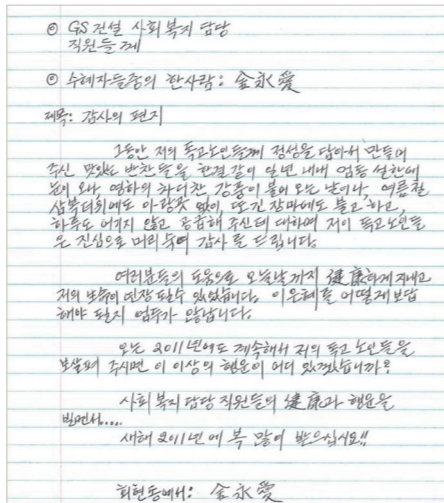 ◎ GS건설 사회복지 담당
직원들께
◎ 수혜자들중의 한사람: 金永愛
제목: 감사의 편지
그동안 저의 독고노인들께 정성을 담아서 만들어
주신 맛있는 반찬들을 한결같이 일년 내내 엄동설한에
눈이 오나, 영하의 차디찬 강풍이 불어 오는 날이나, 여름철
삼복더위에도 아랑곳 없이, 또 긴 장마에도 불고 하고,
하루도 어기지 않고 공급해 주신데 대하여 저이 독고노인들
은 진심으로 머리숙여 감사를 드립니다.
여러분들의 도움으로 오늘날까지 健康하게 지내고
저의 보수이 연장 될수 있었습니다. 이 은혜를 어떻게 보답
해야 될지 엄두가 안납니다.
오는 2011년에도 계속해서 저의 독고노인들을
보살펴 주시면 이 이상의 행운이 어디 있겠습니까?
사회복지 담당 직원들의 健康과 행운을
빌면서....
새해 2011년에 복 많이 받으십시요!!
회현동에서: 金永愛